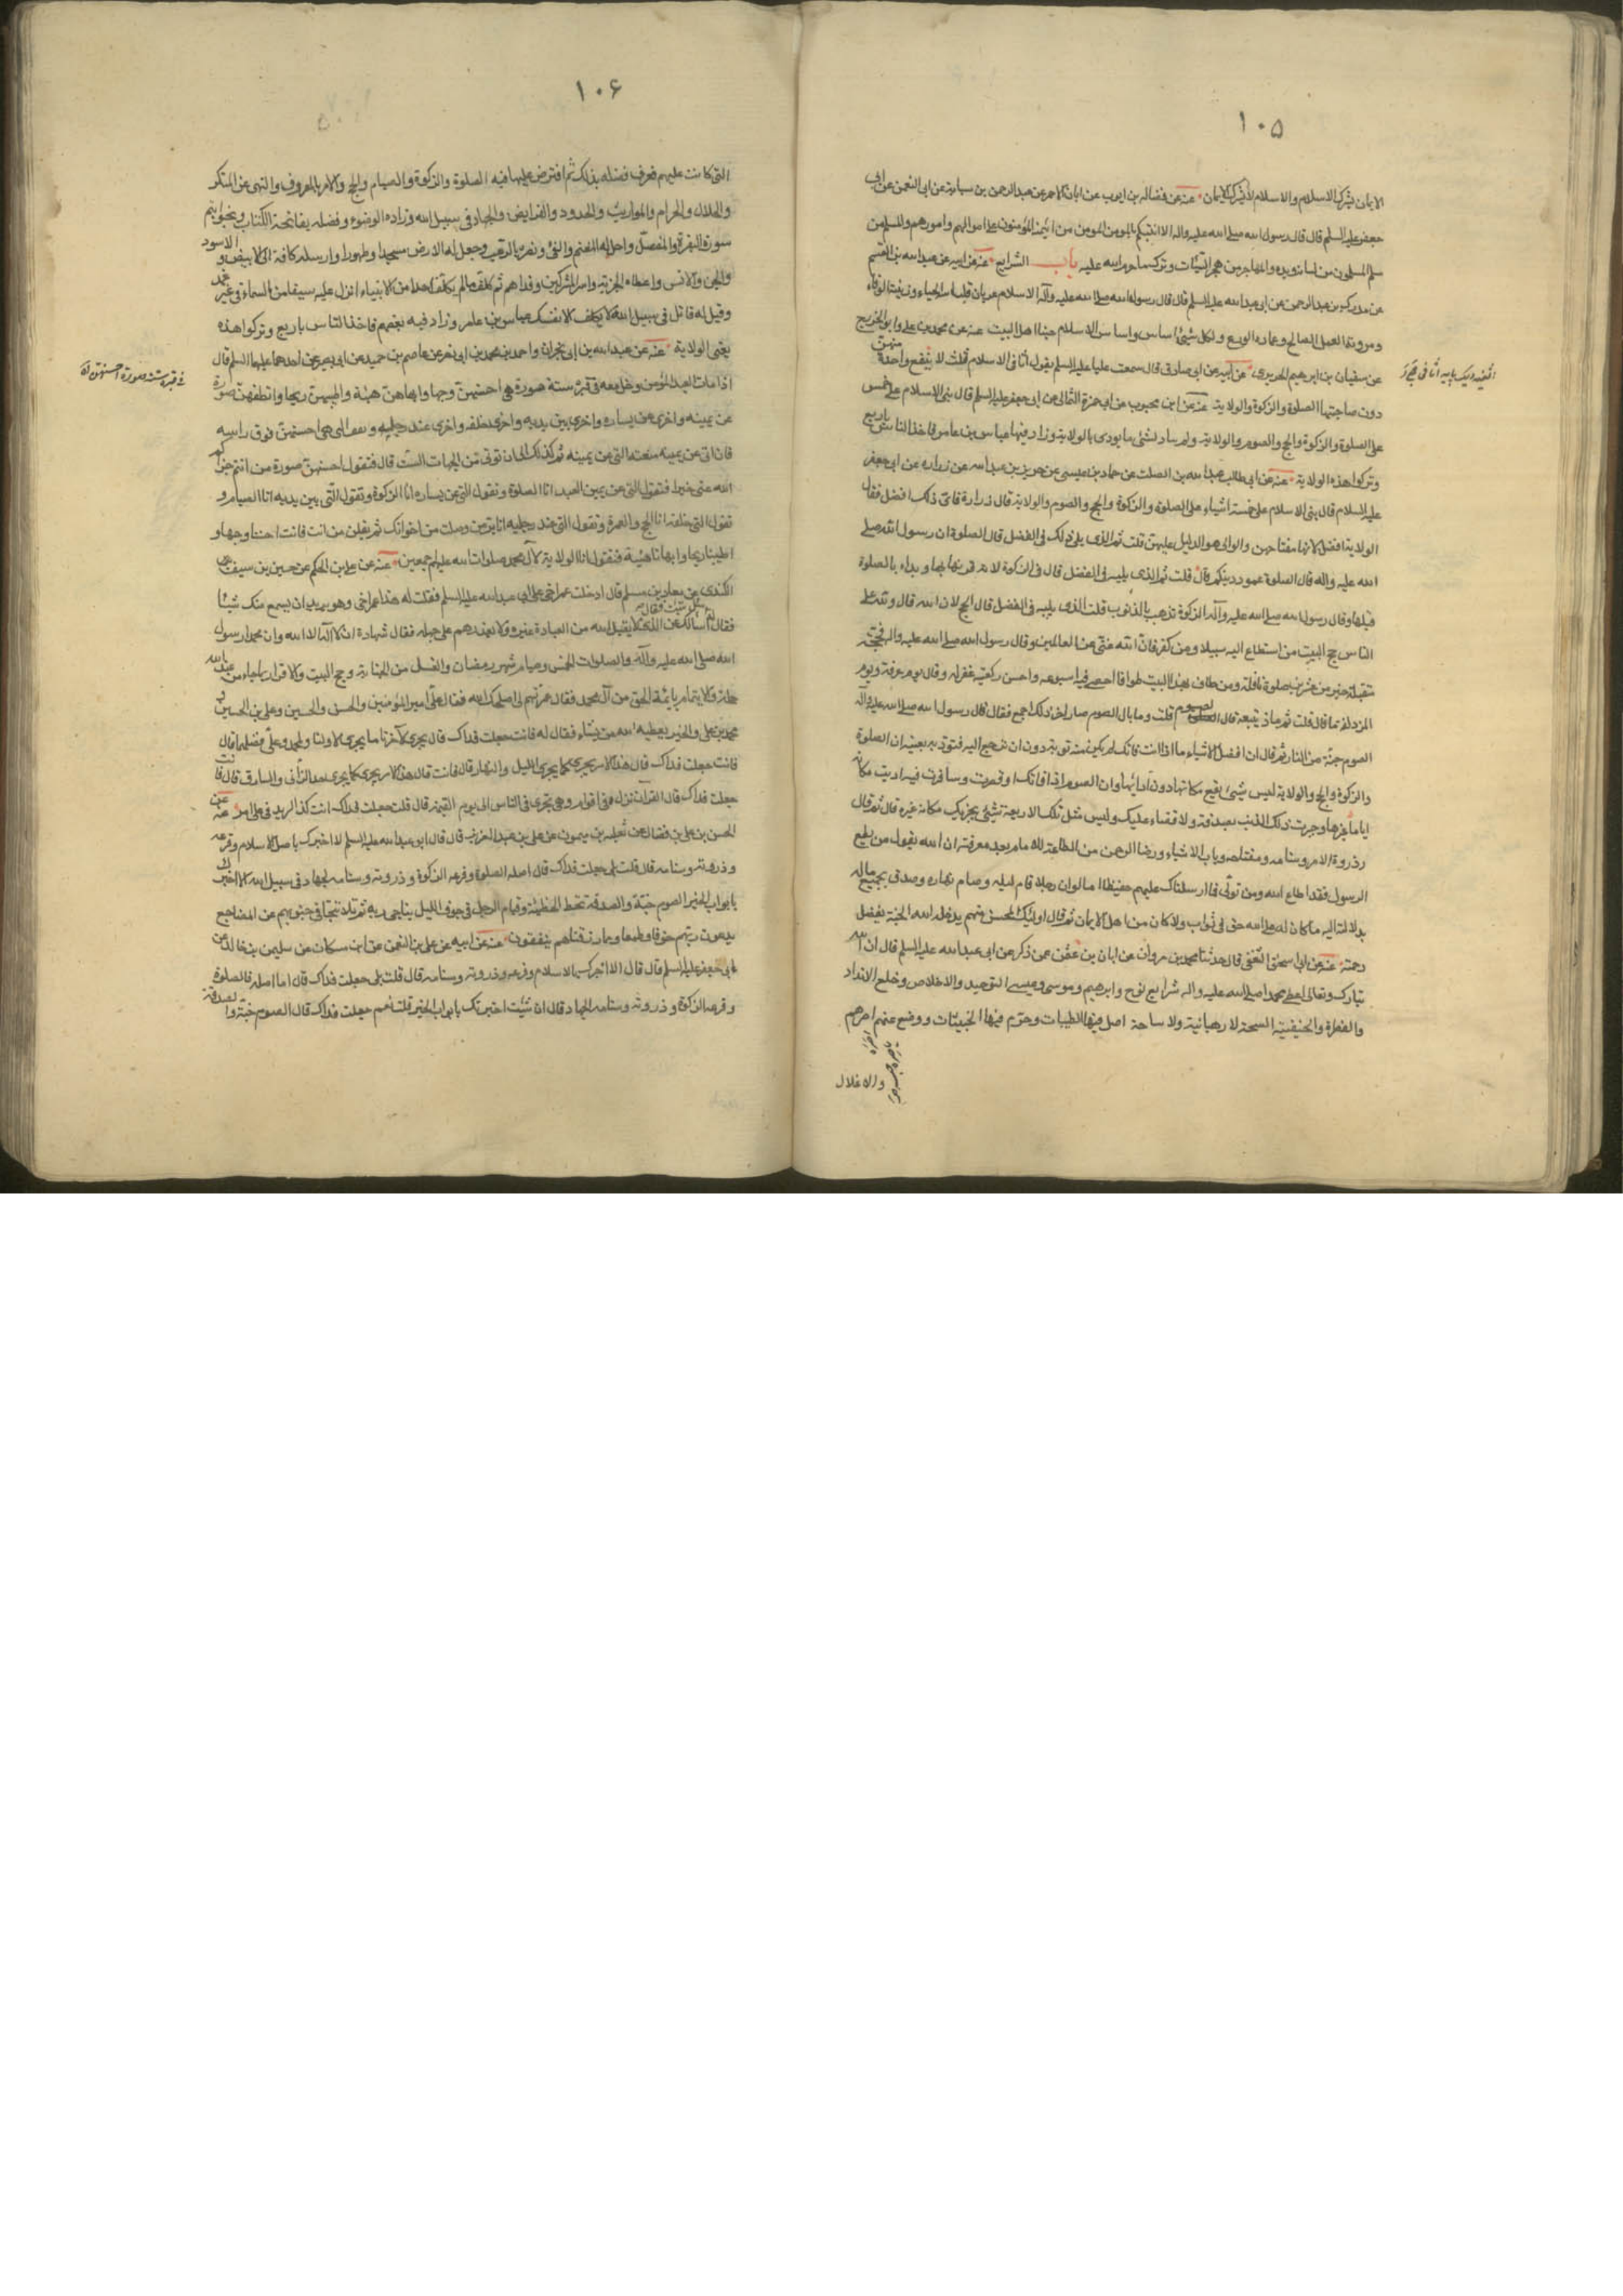 ١٠٥
الايمان يشرك الاسلام والاسلام لا يشرك الايمان عنه عن فضاله بن ايوب عن ابان الاحمر عن عبد الرحمن بن سيابة عن ابى النعمن عن ابى
جعفر عليه السلم قال قال رسول الله صلى الله عليه واله الا انبئكم بالمومن المومن من ائتمنه المؤمنون على اموالهم وامورهم والمسلم من
سلم المسلمون من لسانه ويده والمهاجر من هجر السيئات وترك ما حرم الله عليه باب الشرايع عنه عن ابيه عن عبد الله بن القسم
عن مدرك بن عبد الرحمن عن ابى عبد الله عليه السلم قال قال رسول الله صلى الله عليه وآله الاسلام عريان فلباسه الحياء وزينته الوفاء
ومروته العمل الصالح وعماده الورع ولكل شيئ اساس واساس الاسلام حبنا اهل البيت عنه عن محمد بن على وابو الخزرج
عن سفيان بن ابرهيم الحريرى عن ابيه عن ابى صادق قال سمعت عليا عليه السلم يقول اثافى الاسلام ثلث لا ينفع واحدة منهن
دون صاحبتها الصلوة والزكوة والولاية عنه عن ابن محبوب عن ابى حمزة الثمالى عن ابى جعفر عليه السلم قال بنى الاسلام على خمس
على الصلوة والزكوة والحج والصوم والولاية ولم يناد بشئ ما نودى بالولاية وزاد فيها عباس بن عامر فاخذ الناس باربع
وتركوا هذه الولاية عنه عن ابى طالب عبد الله بن الصلت عن حماد بن عيسى عن حريز بن عبد الله عن زراره عن ابى جعفر
عليه السلام قال بنى الاسلام على خمسة اشياء على الصلوة والزكوة والحج والصوم والولاية قال زرارة فاى ذلك افضل فقال
الولاية افضل لانها مفتاحهن والوالى هو الدليل عليهن قلت ثم الذى يلى ذلك فى الفضل قال الصلوة ان رسول الله صلى
الله عليه واله قال الصلوة عمود دينكم قال قلت ثم الذى يليه فى الفضل قال فى الزكوة لانه قرنها بها وبداء بالصلوة
قبلها وقال رسول الله صلى الله عليه وآله الزكوة تذهب بالذنوب قلت الذى يليه فى الفضل قال الحج لان الله قال ولله على
الناس حج البيت من استطاع اليه سبيلا ومن كفر فان الله غنى عن العالمين وقال رسول الله صلى الله عليه واله لحجة
متقبلة خير من عشرين صلوة نافلة ومن طاف بهذا البيت طوافا احصى فيه اسبوعه واحسن ركعتيه غفر له وقال يوم عرفة ويوم
المزدلفة ما قال قلت ثم ماذ يتبعه قال الصوم قلت وما بال الصوم صار اخر ذلك اجمع فقال قال رسول الله صلى الله عليه وآله
الصوم جنة من النار ثم قال ان افضل الاشياء ما اذا انت فاتك لم يكن منه توبة دون ان ترجع اليه فتؤديه بعينه ان الصلوة
والزكوة والحج والولاية ليس شيئ يقع مكانها دون ادائها وان الصوم اذا فاتك او قصرت وسافرت فيه اديت مكانه
اياما غيرها وجبرت ذلك الذنب بصدقة ولا قضاء عليك وليس مثل تلك الاربعة شيئ يجزيك مكانه غيره قال ثم قال
وذروة الامر وسنامه ومفتاحه وباب الاشياء ورضا الرحمن من الطاعة للامام بعد معرفته ان الله يقول من يطع
الرسول فقد اطاع الله ومن تولى فما ارسلناك عليهم حفيظا اما لو ان رجلا قام ليله وصام نهاره وصدق بجميع ماله
بدلالته اليه ما كان له على الله حق فى ثواب ولا كان من اهل الايمان ثم قال اولئك المحسن منهم يدخله الله الجنة بفضل
رحمته عنه عن ابى اسحق الثقفى قال حدثنا محمد بن مروان عن ابان بن عثمن عمن ذكره عن ابى عبد الله عليه السلم قال ان الله
تبارك وتعالى اعطى محمدا صلى الله عليه واله شرايع نوح وابرهيم وموسى وعيسى التوحيد والاخلاص وخلع الانداد
والفطرة والحنيفية السمحة لا رهبانية ولا سياحة احل فيها الطيبات وحرم فيها الخبيثات ووضع عنهم اصرهم
والاغلال
١٠۶
التى كانت عليهم فعرف فضله بذلك ثم افترض عليها فيه الصلوة والزكوة والصيام والحج والامر بالمعروف والنهى عن المنكر
والحلال والحرام والمواريث والحدود والفرايض والجهاد فى سبيل الله وزاده الوضوء وفضله بفاتحة الكتاب وبخواتيم
سورة البقرة والمفصل واحل له المغنم والفئ ونصره بالرعب وجعل له الارض مسجدا وطهورا وارسله كافة الى الابيض والاسود
والجن والانس واعطاه الجزية واسر المشركين وفداهم ثم كلف ما لم يكلف احدا من الانبياء انزل عليه سيفا من السماء فى غير غمد
وقيل له قاتل فى سبيل الله لا يكلف الا نفسك عباس بن عامر وزاد فيه بعضهم فاخذ الناس باربع وتركوا هذه
يعنى الولاية عنه عن عبد الله بن ابى نجران واحمد بن محمد بن ابى نصر عن عاصم بن حميد عن ابى بصير عن احدهما عليهما السلم قال
اذا مات العبد المؤمن دخل معه فى قبره ستة صورة هى احسنهن وجها وابهاهن هيئة واطيبهن ريحا وانظفهن صورة
عن يمينه واخرى عن يساره واخرى بين يديه واخرى خلفه واخرى عند رجليه وتقف التى هى احسنهن فوق راسه
فان اتى عن يمينه منعته التى عن يمينه ثم كذلك الى ان يؤتى من الجهات الست قال فتقول احسنهن صورة من انتم جزاكم
الله عنى خيرا فتقول التى عن يمين العبد انا الصلوة وتقول التى عن يساره انا الزكوة وتقول التى بين يديه انا الصيام و
تقول التى خلفه انا الحج والعمرة وتقول التى عند رجليه انا بر من وصلت من اخوانك ثم يقلن من انت فانت احسننا وجها و
اطيبنا ريحا وابهانا هيئة فتقول انا الولاية لآل محمد صلوات الله عليهم اجمعين عنه عن على بن الحكم عن حسين بن سيف عن
الكندى عن معاذ بن مسلم قال ادخلت عمر اخى على ابى عبد الله عليه السلم فقلت له هذا عمر اخى وهو يريد ان يسمع منك شيئا
فقال له سل ما شئت فقال اسالك عن الذى لا يقبل الله من العباد غيره ولا يعذرهم على جهله فقال شهادة ان لا اله الا الله وان محمدا رسول
الله صلى الله عليه وآله والصلوات الخمس وصيام شهر رمضان والغسل من الجنابة وحج البيت والاقرار بما جاء من عند الله
جملة والايتمام بائمة الحق من آل محمد فقال عمر سمهم لى اصلحك الله فقال على امير المؤمنين والحسن والحسين وعلى بن الحسين و
محمد بن على والخير يعطيه الله من يشاء فقال له فانت جعلت فداك قال يجرى لآخرنا ما يجرى لاولنا ولمحمد وعلى فضلهما قال
فانت جعلت فداك قال هذا الامر يجرى كما يجرى الليل والنهار قال فانت قال هذا الامر يجرى كما يجرى حد الزانى والسارق قال فانت
جعلت فداك قال القرآن نزل فى اقوام وهى تجرى فى الناس الى يوم القيمة قال قلت جعلت فداك انت لتزيدنى على امر عنه عن
الحسن بن على بن فضال عن ثعلبه بن ميمون عن على بن عبد العزيز قال قال ابو عبد الله عليه السلم الا اخبرك باصل الاسلام وفرعه
وذروته وسنامه قال قلت بلى جعلت فداك قال اصله الصلوة وفرعه الزكوة وذروته وسنامه الجهاد فى سبيل الله الا اخبرك
بابواب الخير الصوم جنة والصدقة تحط الخطيئة وقيام الرجل فى جوف الليل يناجى ربه ثم تلا تتجافى جنوبهم عن المضاجع
يدعون ربهم خوفا وطمعا ومما رزقناهم ينفقون عنه عن ابيه عن على بن النعمن عن ابن مسكان عن سليمن بن خالد عن
ابى جعفر عليه السلم قال قال الا اخبرك بالاسلام وفرعه وذروته وسنامه قال قلت بلى جعلت فداك قال اما اصله فالصلوة
وفرعه الزكوة وذروته وسنامه الجهاد قال ان شئت اخبرتك بابواب الخير قلت نعم جعلت فداك قال الصوم جنة والصدقة